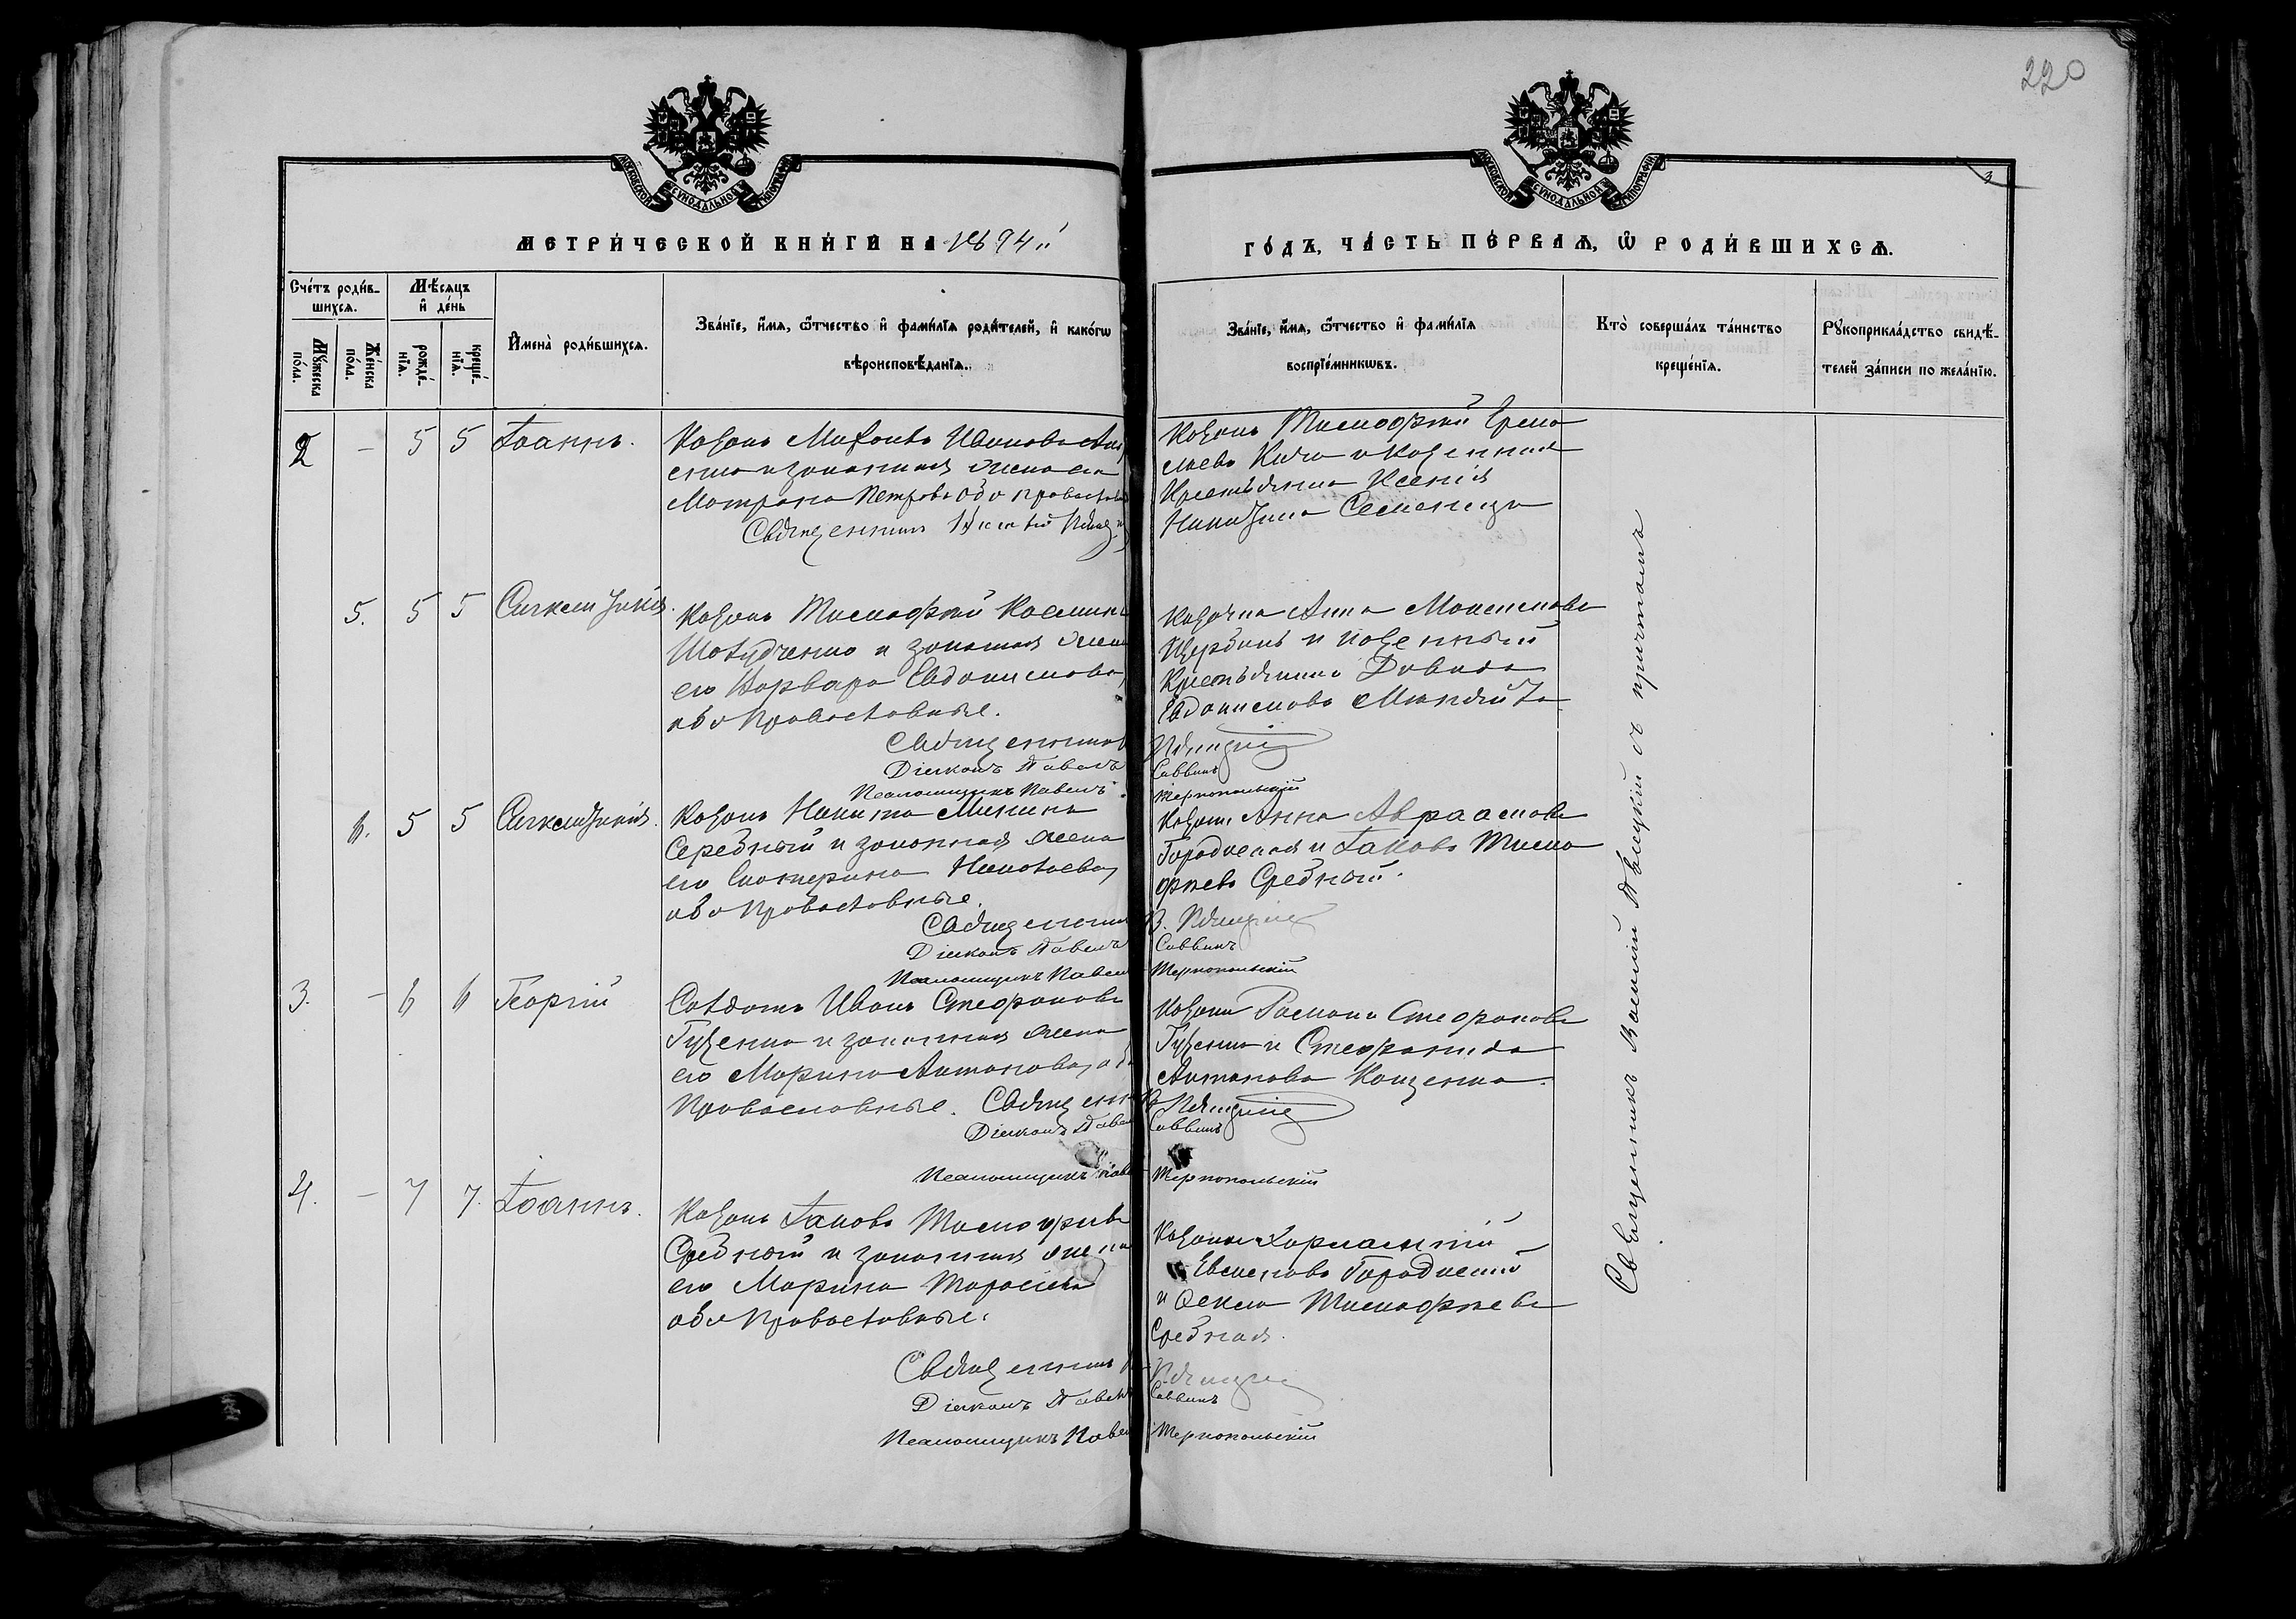 220
МОСКОВСКОЙ СѴНОДАЛЬНОЙ ТѴПОГРАФІИ
МОСКОВСКОЙ СѴНОДАЛЬНОЙ ТѴПОГРАФІИ
3
МЕТРИ́ЧЕСКОЙ КНИ́ГИ НА 1894
ГО́ДЪ, ЧА́СТЬ ПЕ́РВАѦ, Ѽ РОДИ́ВШИХСѦ.
Сче́тъ роди́в-
шихсѧ.
Мꙋ́жеска по́ла.
Же́нска по́ла.
Мѣ́сѧцъ и҆ де́нь
рожде́-
нїѧ.
креще́-
нїѧ.
И҆мена̀ роди́вшихсѧ.
Зва́нїе, и҆́мѧ, ѻ҆́тчество и҆ фами́лїѧ роди́телей, и҆ како́гѡ
вѣроисповѣ́данїѧ.
Зва́нїе, и҆́мѧ, ѻ҆́тчество и҆ фами́лїѧ
воспрїе́мникѡвъ.
Кто̀ соверша́лъ та́инство
креще́нїѧ.
Рꙋкоприкла́дство свидѣ́-
телей за́писи по жела́нїю.
2 - 5 5 Іоаннъ.
Козакъ Иванова
енко и законная жена его
Матрона Петрова оба православ
Священникъ
Козакъ Тимофей Ермо
лаевъ и казенная
Крестьянка Ксенія
5. 5 5 Синклитикія.
Козакъ Тимофей Косминъ
и законная жена
его Варвара Евдокимова,
оба православные.
Священникъ
Діаконъ Павелъ
Псаломщикъ Павелъ
Козачка Анна Максимова
Щербань и казенный
Крестьянинъ
Евдокимовъ
Пѣвицкій
Саввинъ
Тернопольскій
6. 5 5 Синклитикія.
Козакъ Никита Мининъ
Середный и законная жена
его Екатерина Николаева,
оба православные.
Священникъ
Діаконъ Павелъ
Псаломщикъ Павелъ
Козачка Анна Авраамова
Городнеская и Іаковъ Тимо
феевъ Средный.
В. Пѣвицкій
Саввинъ
Тернопольскій
3. - 6 6 Георгій
Солдатъ Иванъ Стефановъ
Гузенко и законная жена
его Марина Антонова, оба
Православные. Священникъ
Діаконъ Павелъ
Псаломщикъ Павелъ
Козакъ Романъ Стефановъ
Гузенко и Стефанида
Антонова Коценко.
В. Пѣвицкій
Саввинъ
Тернопольскій
4. - 7 7. Іоаннъ.
Козакъ Іаковъ Тимофеевъ
Средный и законная жена
его Марина Тарасіева
оба Православные.
Священникъ
Діаконъ Павелъ
Псаломщикъ Павелъ
Козакъ Харлампій
Евсиковъ
и Ѳекла Тимофеева
Средная.
Пѣвицкій
Саввинъ
Тернопольскій
Священникъ Василій Пѣвицкій съ причтомъ